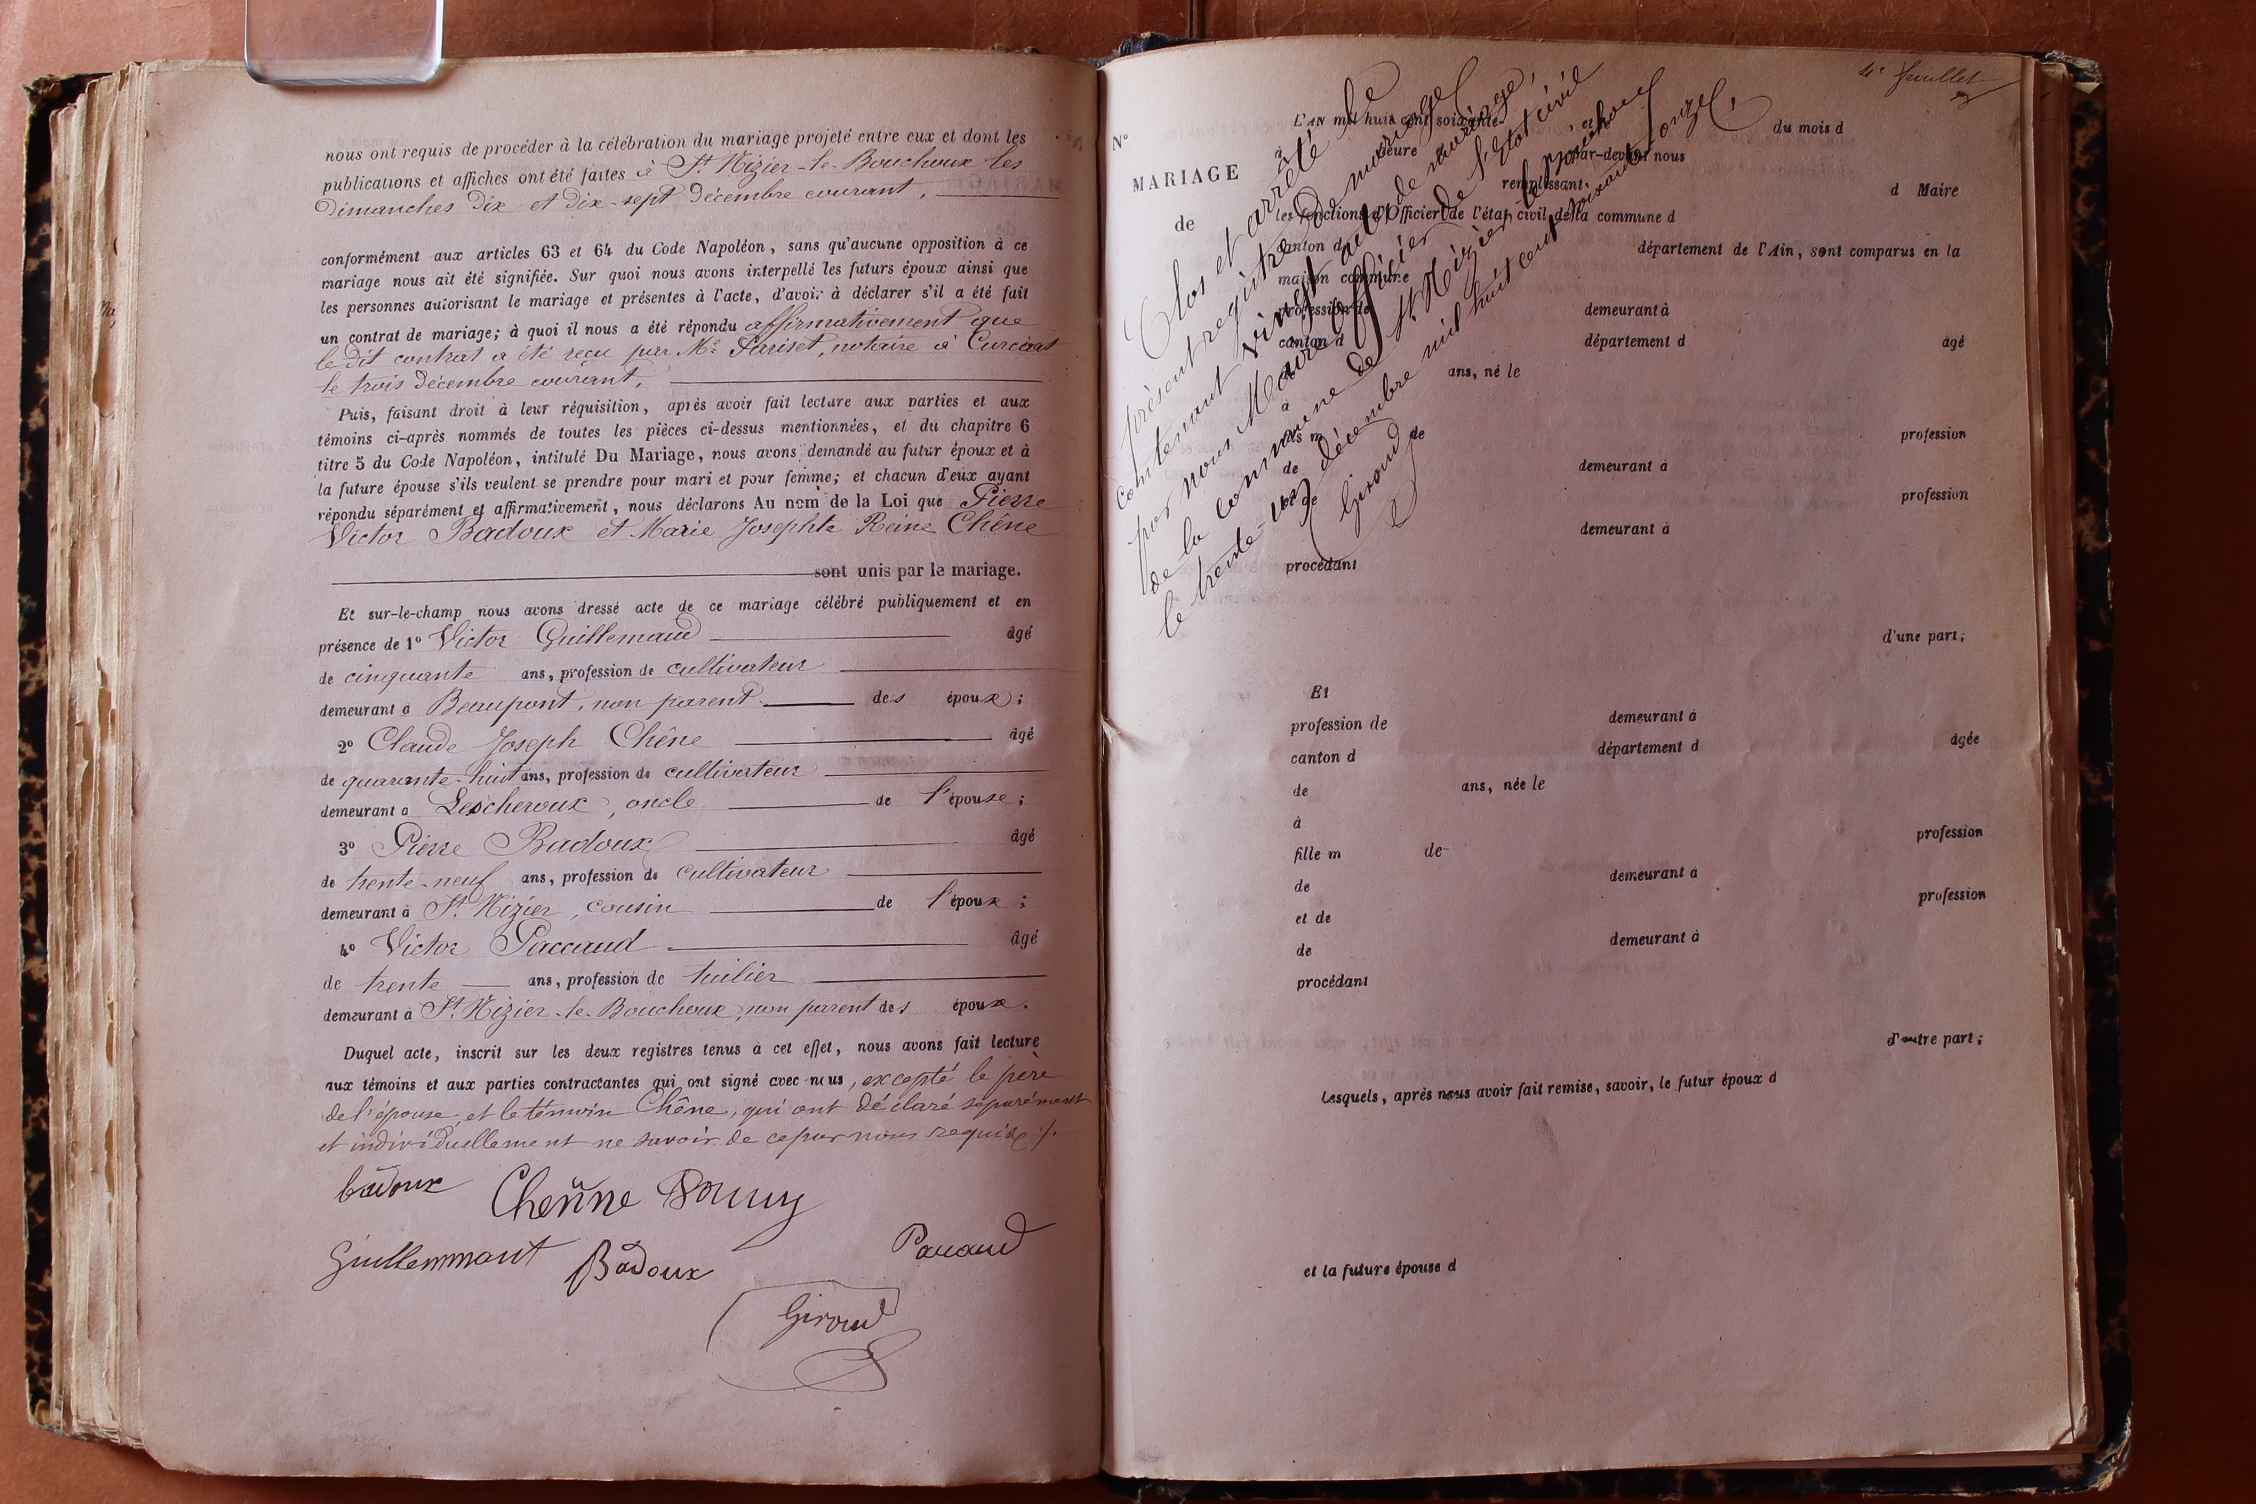 nous ont requis de procéder à la célébration du mariage projeté entre eux et dont les
publications et affiches ont été faites à St Nizier-le-Bouchoux les
Dimanches dix et dix-sept décembre courant,
conformément aux articles 63 et 64 du Code Napoléon, sans qu'aucune opposition à ce
mariage nous ait été signifiée. Sur quoi nous avons interpellé les futurs époux ainsi que
les personnes autorisant le mariage et présentes à l'acte, d'avoir à déclarer s'il a été fait
un contrat de mariage; à quoi il nous a été répondu affirmativement que
le dit contrat a été reçu par Me Pariset, notaire à Curciat
le trois décembre courant.
Puis, faisant droit à leur réquisition, après avoir fait lecture aux parties et aux
témoins ci-après nommés de toutes les pièces ci-dessus mentionnées, et du chapitre 6
titre 5 du Code Napoléon, intitulé Du Mariage, nous avons demandé au futur époux et à
la future épouse s'ils veulent se prendre pour mari et pour femme; et chacun d'eux ayant
répondu séparément et affirmativement, nous déclarons Au nom de la Loi que Pierre
Victor Badoux et Marie Josephte Reine Chêne
sont unis par le mariage.
Et sur-le-champ nous avons dressé acte de ce mariage célébré publiquement et en
présence de 1º Victor Guillemaud âgé
de cinquante ans, profession de cultivateur
demeurant à Beaupont, non parent des époux;
2º Claude Joseph Chêne âgé
de quarante-huit ans, profession de cultivateur
demeurant à Lescheroux, oncle de l'épouse;
3º Pierre Badoux âgé
de trente-neuf ans, profession de cultivateur
demeurant à St Nizier, cousin de l'époux;
4º Victor Paccaud âgé
de trente ans, profession de tuilier
demeurant à St Nizier-le-Bouchoux, non parent des époux.
Duquel acte, inscrit sur les deux registres tenus à cet effet, nous avons fait lecture
aux témoins et aux parties contractantes qui ont signé avec nous, excepté le père
de l'épouse, et le témoin Chêne, qui ont déclaré séparément
et individuellement ne savoir de ce par nous requis ./.
badoux Chenne
Guillemmaut Badoux Pacaud
Giroud
4e feuillet
Nº
MARIAGE
de
L'AN mil huit cent soixante- et du mois d
à heure d par-devant nous
remplissant d Maire
les fonctions d'Officier de l'état civil de la commune d
canton d département de l'Ain, sont comparus en la
maison commune
profession de demeurant à
canton d département d âgé
ans, né le
à
fils m de profession
de demeurant à
et de profession
demeurant à
procédant
d'une part;
Clos et arrêté le
présent registre de mariages
contenant vingt actes de mariage,
par nous Maire Officier de l'Etat civil
de la commune de St Nizier-le-Bouchoux
le trente-un décembre mil huit cent soixante-onze.
Giroud
Et
profession de demeurant à
canton d département d âgée
de ans, née le
à
fille m de profession
de demeurant à
et de profession
de demeurant à
procédant
d'autre part;
Lesquels, après nous avoir fait remise, savoir, le futur époux d
et la future épouse d